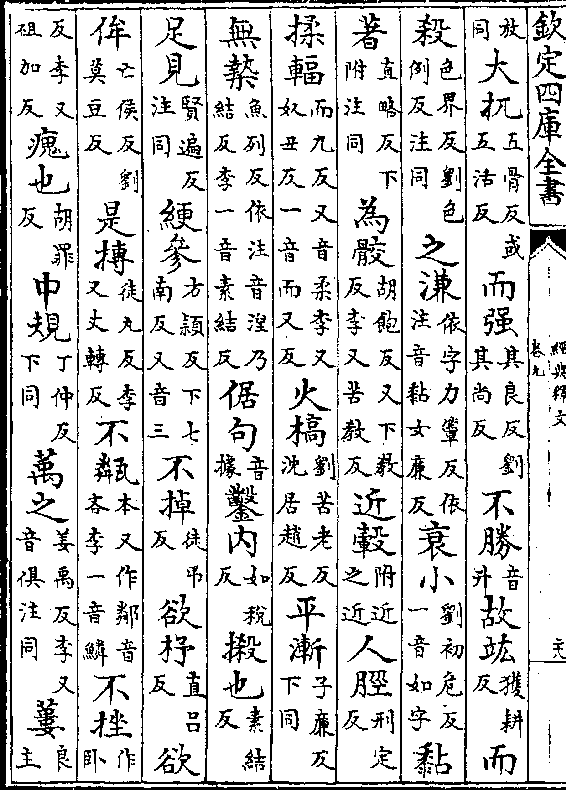 欽定四庫全書
經典釋文
卷九
放同大扤五骨反或五活反而强其良反劉其尚反不勝音升故竑獲耕反而
殺色界反劉色例反注同之溓依字力簟反依注音黏女廉反衰小劉初危反一音如字黏
著直略反下附注同為骹胡飽反又下教反李又苦教反近轂附近之近人脛刑定反
揉輻而九反又音柔李又奴丑反一音而又反火槁劉苦老反沈居趙反平漸子廉反下同
無槷魚列反依注音湼乃結反李一音素結反倨句音據鑿内如稅反摋也素結反
足見賢遍反注同綆參方潁反下七南反又音三不掉徒弔反欲杼直呂反欲
侔亡侯反劉莫豆反是摶徒丸反李又丈轉反不甐本又作鄰音吝李一音鱗不挫作卧
反李又祖加反瘣也胡罪反中規丁仲反下同萬之姜禹反李又音俱注同蔞良主